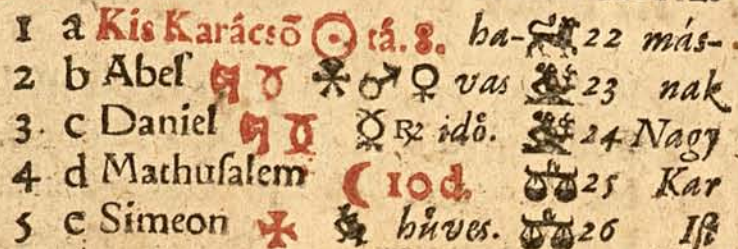 1 a Kis Karácsō ☉ tá. 8. ha- ♌ 22 más-
2 b Abel ♂ ♀ vas ♍ 23 nak
3. c Daniel ☿ ℞ idő. ♍ 24 Nagy
4 d Mathuſalem ☾ 10 d. ♎ 25 Kar
5 e Simeon ✠ hůves. ♎ 26 Iſt